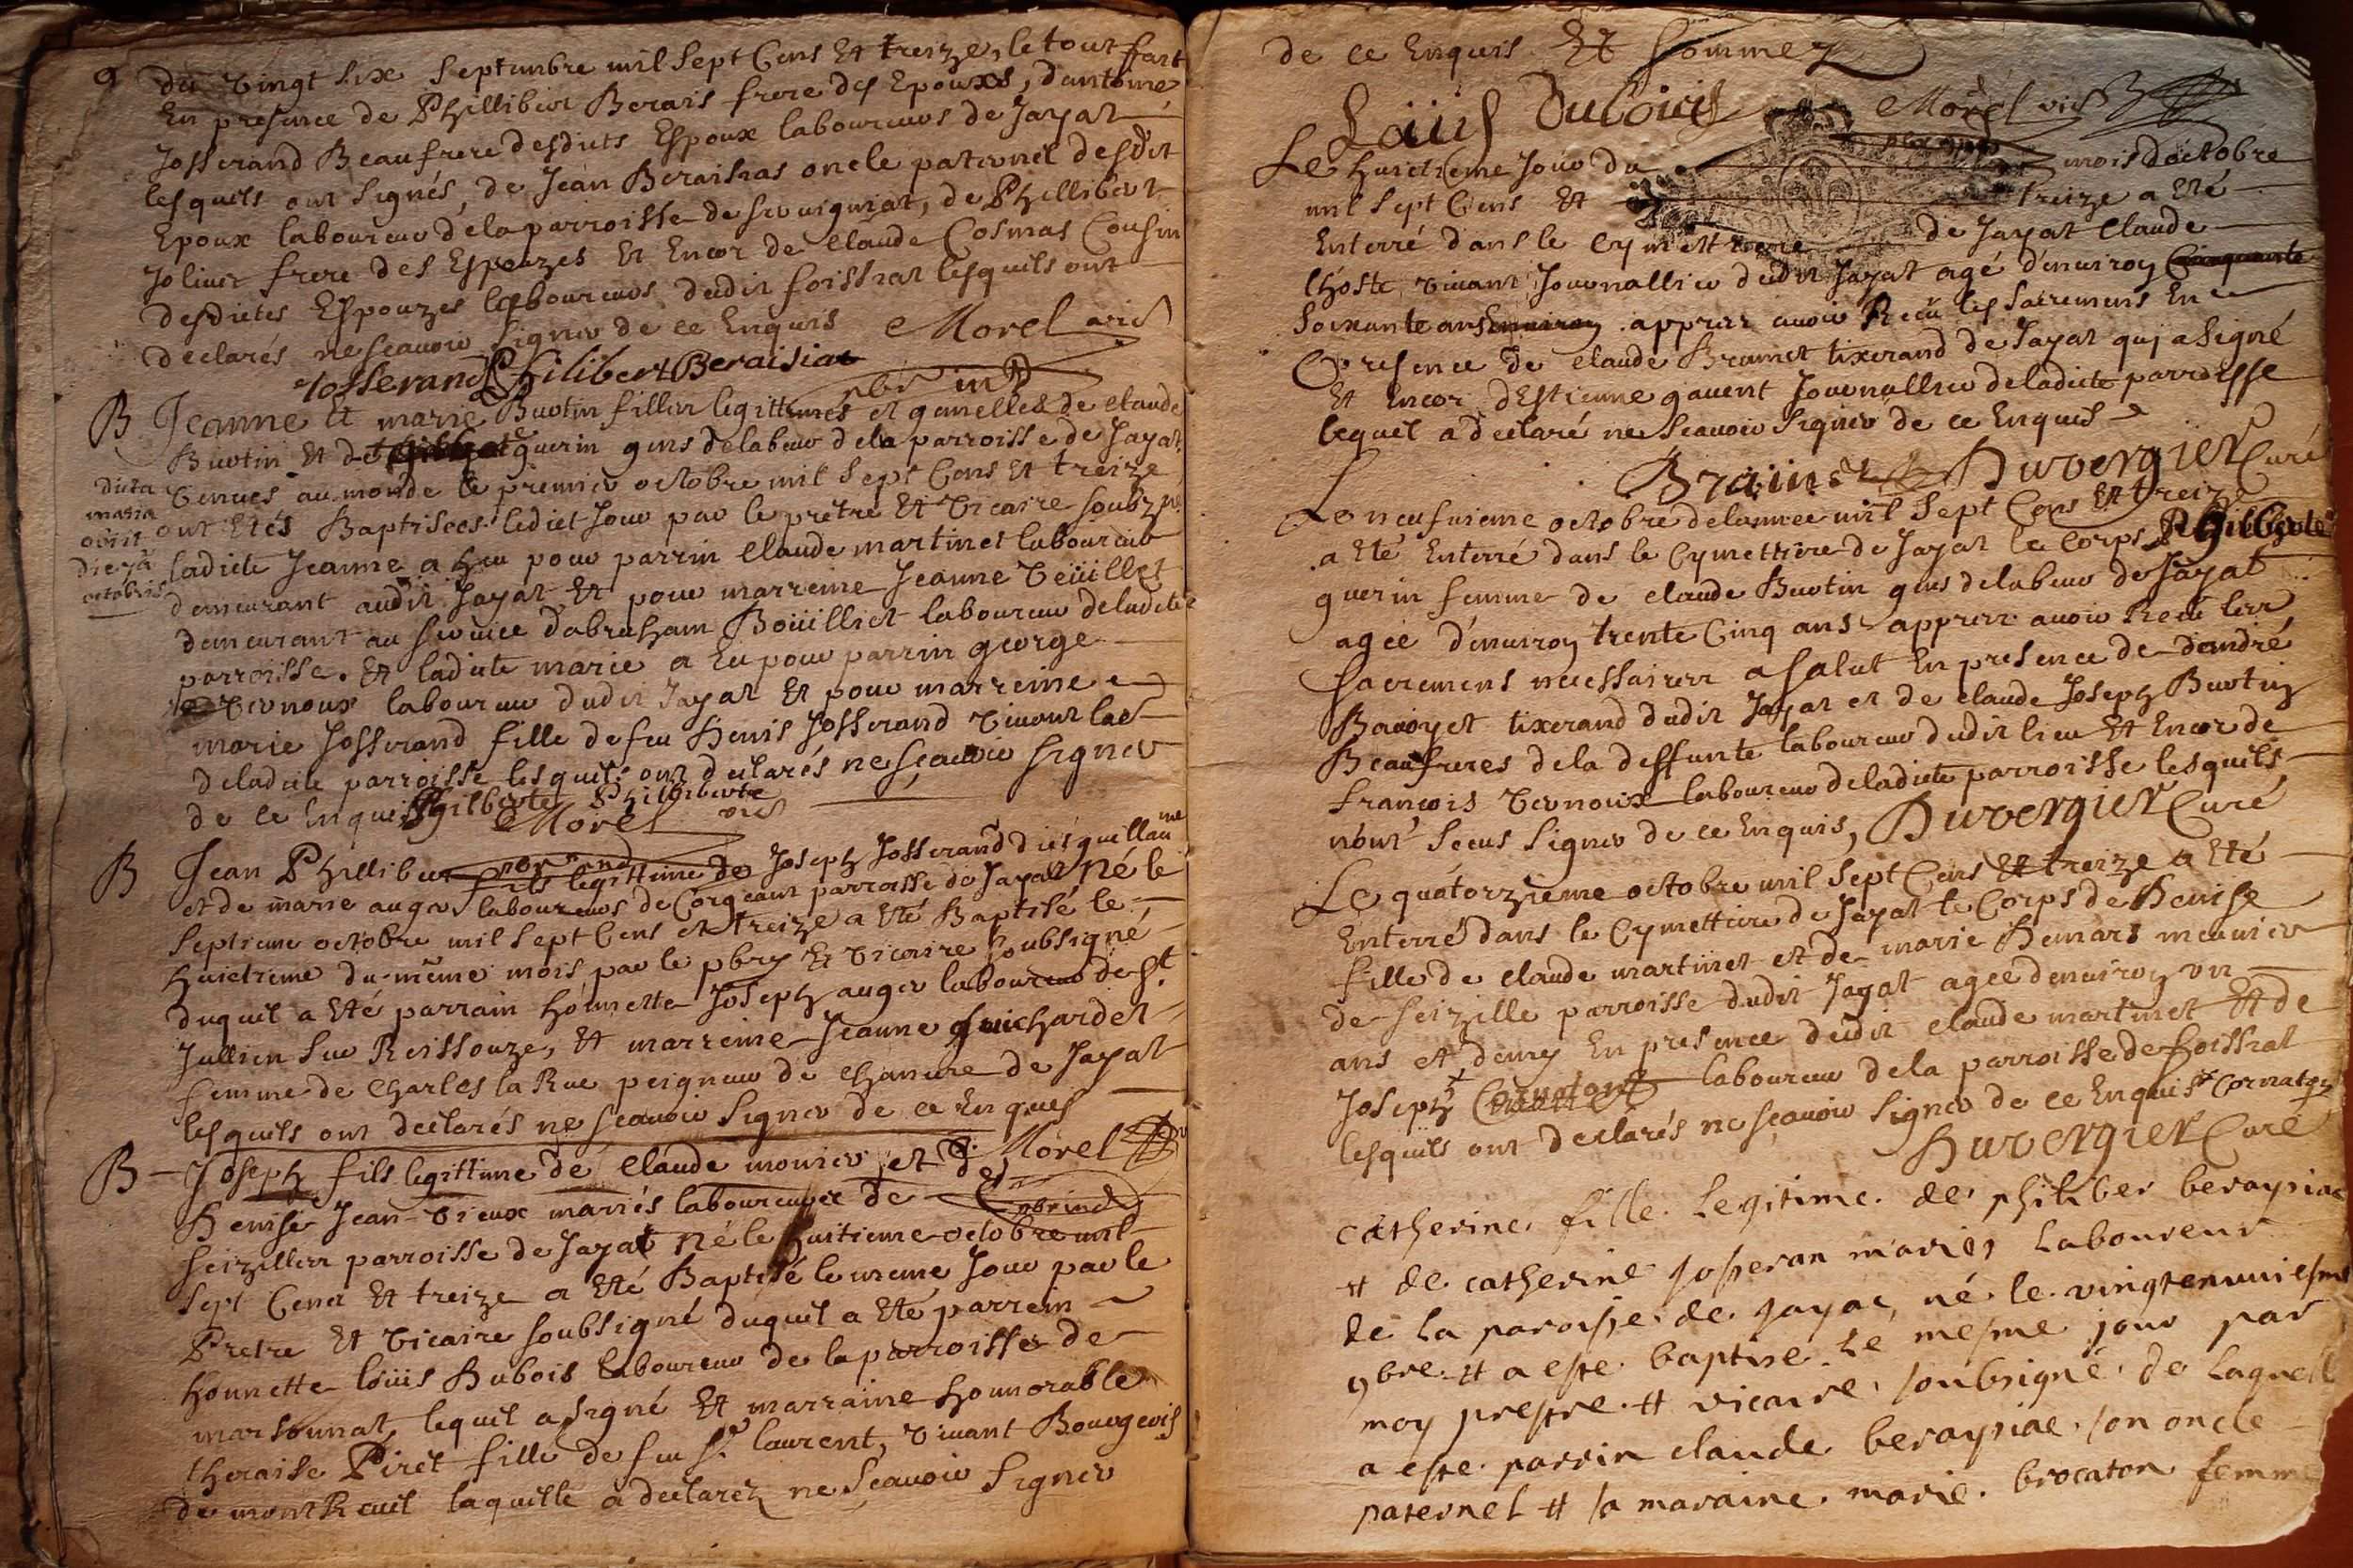 du vingt six septembre mil sept Cens Et treize, le tout fait
En presence de Phillibert Berais frere des Epouxs, dantoine
Josserand Beaufrere desdicts Espoux laboureurs de Jayat
lesquels ont signés, de Jean Beraisias oncle paternel desdit
Epoux laboureur dela parroisse de, de Phillibert
Joliuet frere des Espouzes Et Encor de Claude Cosmas Cousin
desdictes Espouzes laboureurs dudit foissiat lesquels ont
declarés ne scauoir signer de ce Enquis Morel vic
Josserand Philibert Beraisiat
B Jeanne Et marie Buotin filles legittimes et gemelles de claude
Buotin Et de guerin gens delabeur dela parroisse de Jayat
venues au monde le premier octobre mil sept Cens Et treize
ont Etés Baptisees ledict Jour par le prêtre Et vicaire soubzné
dicta
maria
obiit
die 7a
octobris
ladicte Jeanne a heu pour parrin Claude martinet laboureur
demeurant audit Jayat Et pour marreine Jeanne Veüillet
demeurant au seruice dabraham Boüilliet laboureur deladicte
parroisse. Et ladicte marie a Eu pour parrin george
Vernoux laboureur dudit Jayat Et pour marreine
marie Josserand fille de feu Denis Josserand viuant lab
deladicte parroisse lesquels ont declarés ne scauoir signer
de ce Enquis Philberte Philiberte
Morel vic
B Jean Phillibert fils legittime de Joseph Josserand dict guillaume
et de marie auger laboureurs de Corgeant parroisse de Jayat Né le
septieme octobre mil sept Cens et treize a Eté Baptisé le
huictieme du même mois par le pbre Et vicaire soubsigné
duquel a Eté parrain honnette Joseph auger laboureur de St
Jullien sur Reissouze, Et marreine Jeanne guichardet
femme de Charles la Rue peigneur de chanure de Jayat
lesquels ont declarés ne scauoir signer de ce Enquis
Morel
B Joseph fils legittime de Claude mounier et de
Denise Jean-Vieux mariés laboureurs de
seizilles parroisse de Jayat Né le huitieme octobre mil
sept Cens Et treize a Eté Baptisé le meme Jour par le
Pretre Et vicaire soubsigné duquel a Eté parrein
honnette loüis Dubois laboureur de la parroisse de
marsonnat, lequel a signé Et marraine honnorable
theraise Piret fille de feu sr laurent, viuant Bourgeois
de montReuil laquelle a declarez ne scauoir signer
de ce Enquis Et sommez
Loüis Dubois Morel vic
Le huictieme Jour du mois doctobre
mil sept Cens Et treize a Eté
Enterré dans le Cymettiere de Jayat Claude
lhoste, viuant Journallier dudit Jayat agé denuiron
soixante ans apprez auoir Receu les sacremens En
presence de claude Brunet tixerand de Jayat quj a signé
Et Encor dEstienne gauent Journallier deladicte parroisse
lequel a declaré ne scauoir signer de ce Enquis
Brunet Duvergier Curé
Le neufuieme octobre delannee mil sept Cens Et treize
a Eté Enterré dans le Cymettiere de Jayat le corps Philberte
guerin femme de claude Buotin gens delabeur de Jayat
agée denuiron trente Cinq ans apprez auoir Receu les
sacremens necessaires a salut En presence de dandré
Bauoyet tixerand dudit Jayat et de claude Joseph Buotin
Beaufreres dela deffunte laboureur dudit lieu Et Encor de
francois Vernoux laboureur deladicte parroisse lesquels
nont sceus signer de ce Enquis, Duvergier Curé
Le quatorzieme octobre mil sept Cens Et treize a Eté
Enterré dans le Cymettiere de Jayat le Corps de Denise
fille de claude martinet et de marie Demars meunier
de seizille parroisse dudit Jayat agée denuiron un
ans et demy En presence dudit claude martinet Et de
Joseph laboureur dela parroisse de foissiat
lesquels ont declarés ne scauoir signer de ce Enquis Cornaton
Duvergier Curé
catherine fille legitime de philiber beraysiat
et de catherine josseran mariés laboureur
de la paroisse de jayac, né le vingtenuuiesme
9bre et a este baptise le mesme jour par
moy prestre et vicaire soubsigné de laquelle
a este parrin claude beraysiac son oncle
paternel et sa maraine marie brocaton femme